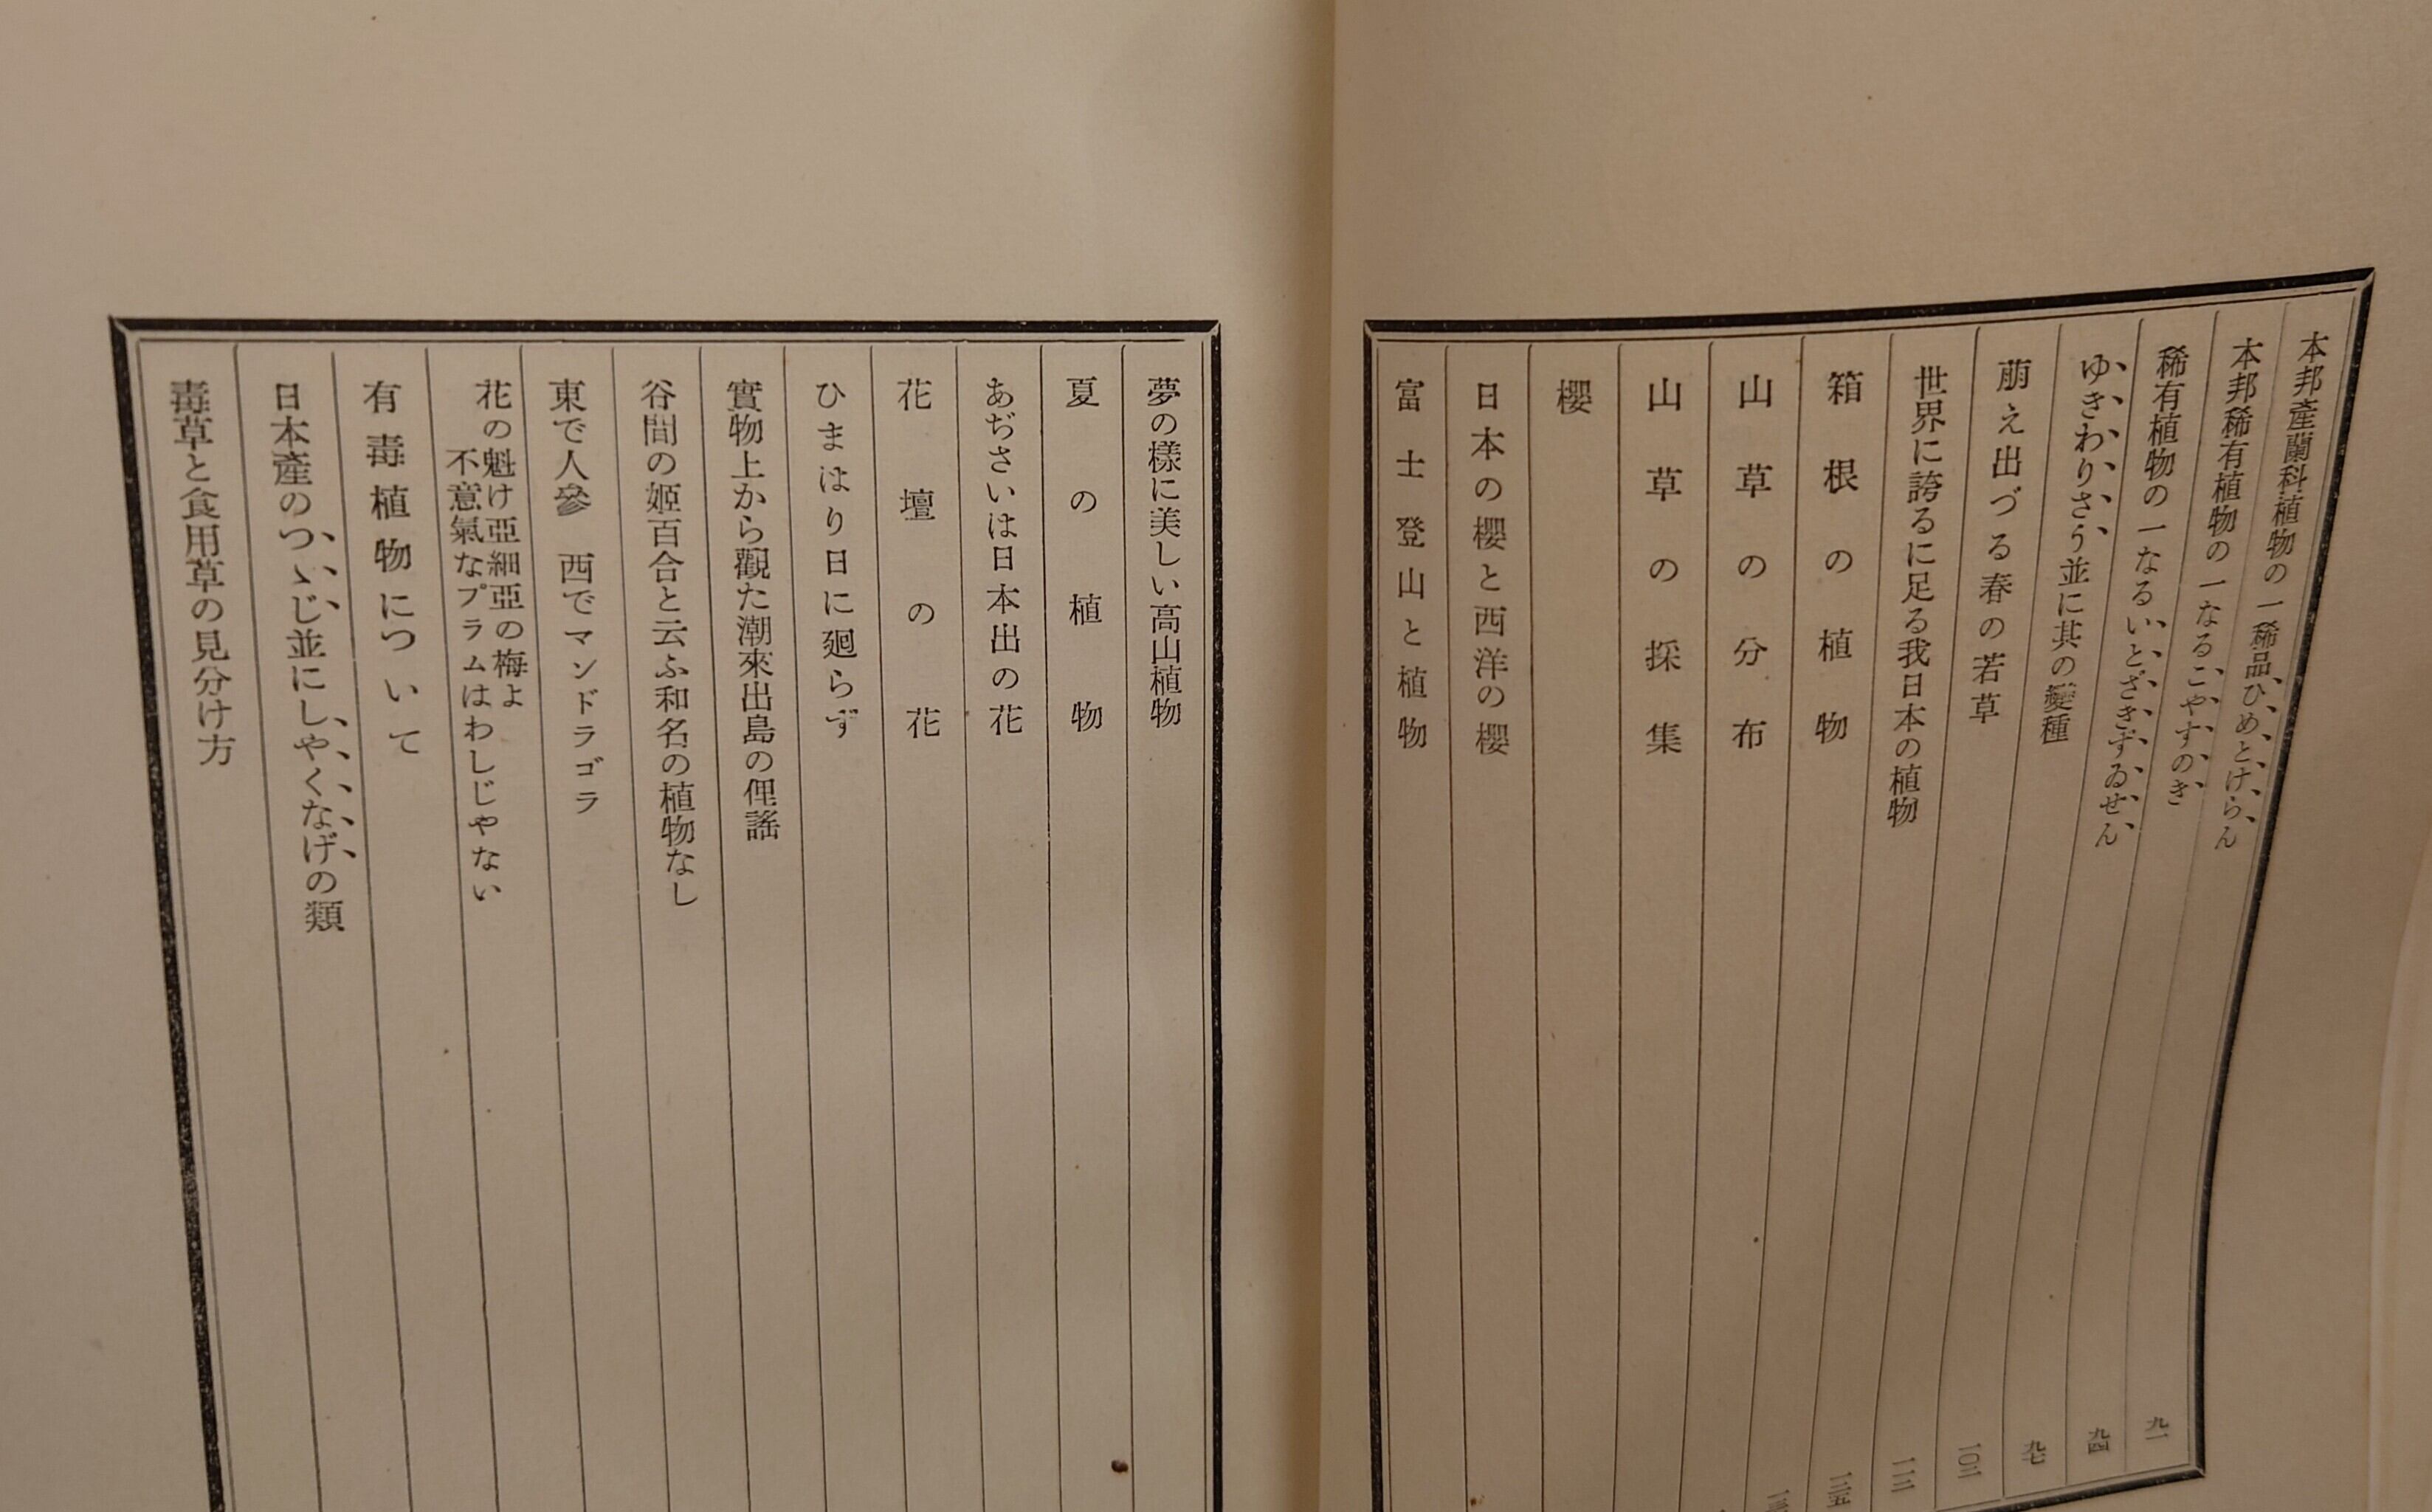 本邦産蘭科植物の一稀品ひめとけらん 九一
本邦稀有植物の一なるこやすのき 九四
稀有植物の一なるいとざきずゐせん 九七
ゆきわりさう並に其の變種 一〇三
萠え出づる春の若草
世界に誇るに足る我日本の植物
箱根の植物
山草の分布
山草の採集
櫻
日本の櫻と西洋の櫻
富士登山と植物
夢の樣に美しい高山植物
夏の植物
あぢさいは日本出の花
花壇の花
ひまはり日に廻らず
實物上から觀た潮來出島の俚謠
谷間の姫百合と云ふ和名の植物なし
東で人參　西でマンドラゴラ
花の魁け亞細亞の梅よ
不意氣なプラムはわしじやない
有毒植物について
日本産のつゝじ並にしやくなげの類
毒草と食用草の見分け方